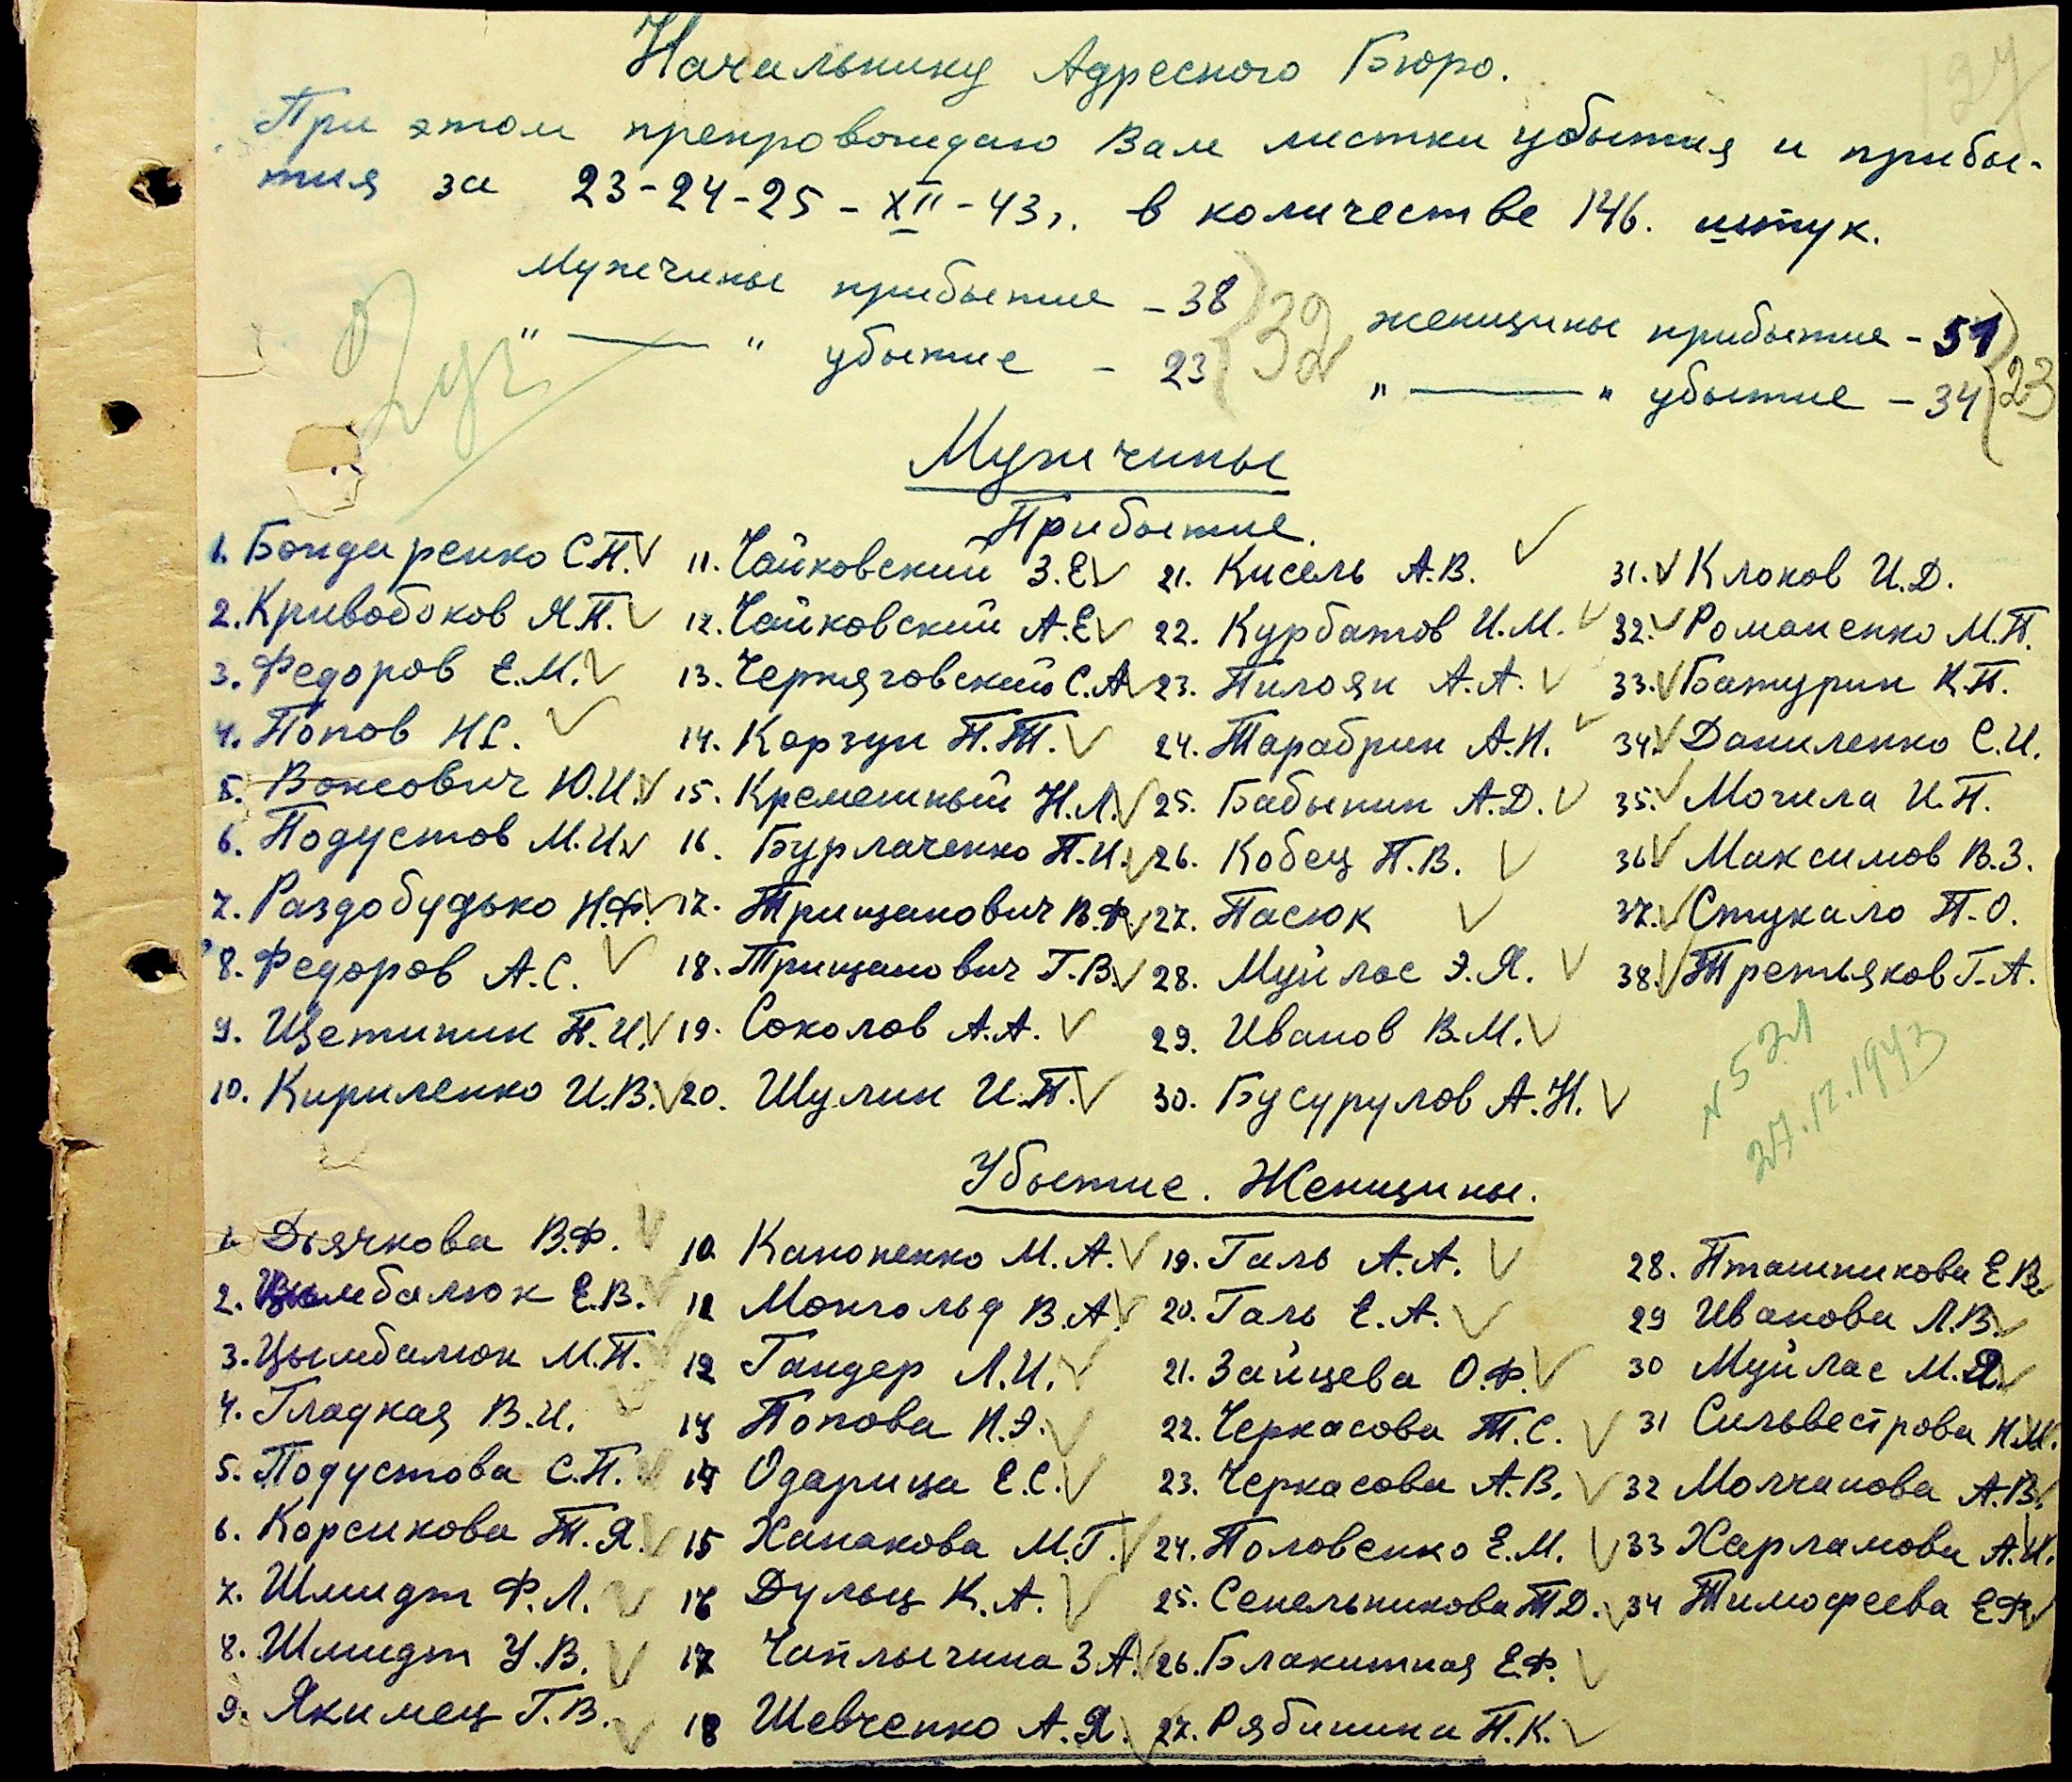 Начальнику Адресного Бюро.
При этом препровождаю Вам листки убытия и прибы-
тия за 23-24-25-XII-43г. в количестве 146. штук.
Мужчины прибытие - 38 32 женщины прибытие - 51
" — " убытие - 23 " — " убытие - 34 23
Мужчины
Прибытие.
1. Бондаренко С.П. 11. Чайковский З.Е. 21. Кисель А.В. 31. Клоков И.Д.
2. Кривобоков Я.П. 12. Чайковский А.Е. 22. Курбатов И.М. 32. Романенко М.П.
3. Федоров Е.М. 13. Черняговский С.А. 23. Пилоян А.А. 33. Батурин К.П.
4. Попов Н.С. 14. Корзун П.Т. 24. Тарабрин А.И. 34. Даниленко С.И.
5. Ю.И. 15. Кременный Н.Л. 25. Бабынин А.Д. 35. Могила И.П.
6. Подустов М.И. 16. Бурлаченко П.И. 26. Кобец П.В. 36. Максимов В.З.
7. Раздобудько Н.Ф. 17. Трищанович В.Ф. 27. Пасюк 37. Стукало П.О.
8. Федоров А.С. 18. Трищанович Г.В. 28. Муйлас Э.Я. 38. Третьяков Г.А.
9. Щетинин П.И. 19. Соколов А.А. 29. Иванов В.М.
10. Кириленко И.В. 20. Шулин И.П. 30. Бусурулов А.Н.
27.12.1943
Убытие. Женщины.
1. Дьячкова В.Ф. 10. Канопенко М.А. 19. Галь А.А. 28. Пташникова Е.В.
2. Цымбалюк Е.В. 11 Монгольд В.А. 20. Галь Е.А. 29 Иванова Л.В.
3. Цымбалюк М.П. 12 Гандер Л.И. 21. Зайцева О.Ф. 30 Муйлас М.Я.
4. Гладкая В.И. 13 Попова Н.Э. 22. Черкасова Т.С. 31 Сильвестрова Н.М.
5. Подустова С.П. 14 Одарица Е.С. 23. Черкасова А.В. 32 Молчанова А.В.
6. Корсикова Т.Я. 15 Ханакова М.Г. 24. Половенко Е.М. 33 Харламова А.И.
7. Шмидт Ф.Л. 16 Дульц К.А. 25. Сенельникова Т.Д. 34 Тимофеева Е.Ф.
8. Шмидт У.В. 17 Чаплыгина З.А. 26. Блакитная Е.Ф.
9. Якимец Г.В. 18 Шевченко А.Я. 27. Рябинина П.К.